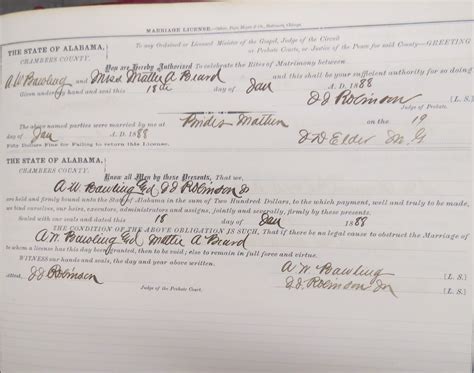 MARRIAGE LICENSE.
THE STATE OF ALABAMA, To any Ordained or Licensed Minister of the Gospel, Judge of the Circuit
CHAMBERS COUNTY. or Probate Courts, or Justice of the Peace for said County—GREETING
You are Hereby Authorized To celebrate the Rites of Matrimony between
A W Bowling and Miss Mattie A Beard and this shall be your sufficient authority for so doing
Given under my hand and seal this 18th day of Jan A. D. 1888
J J Robinson
Judge of Probate.
The above named parties were married by me at Brides Mothers on the 19
day of Jan A. D. 1888 Elder M G
Fifty Dollars Fine for Failing to return this License.
THE STATE OF ALABAMA,
CHAMBERS COUNTY. Know all Men by these Presents, That we,
A W Bowling J J Robinson Jr
are held and firmly bound unto the State of Alabama in the sum of Two Hundred Dollars, to the which payment, well and truly to be made,
we bind ourselves, our heirs, administrators and assigns, jointly and severally, firmly by these presents.
Sealed with our seals and dated this 18 day of Jan 1888
THE CONDITION OF THE ABOVE OBLIGATION IS SUCH, That if there be no legal cause to obstruct the Marriage of
A W Bowling Mattie A Beard
to whom a license has this day been granted, then to be void; else to remain in full force and virtue.
WITNESS our hands and seals, the day and year above written. A W Bowling (L. S.)
Attest, J J Robinson J J Robinson Jr (L. S.)
Judge of the Probate Court. (L. S.)